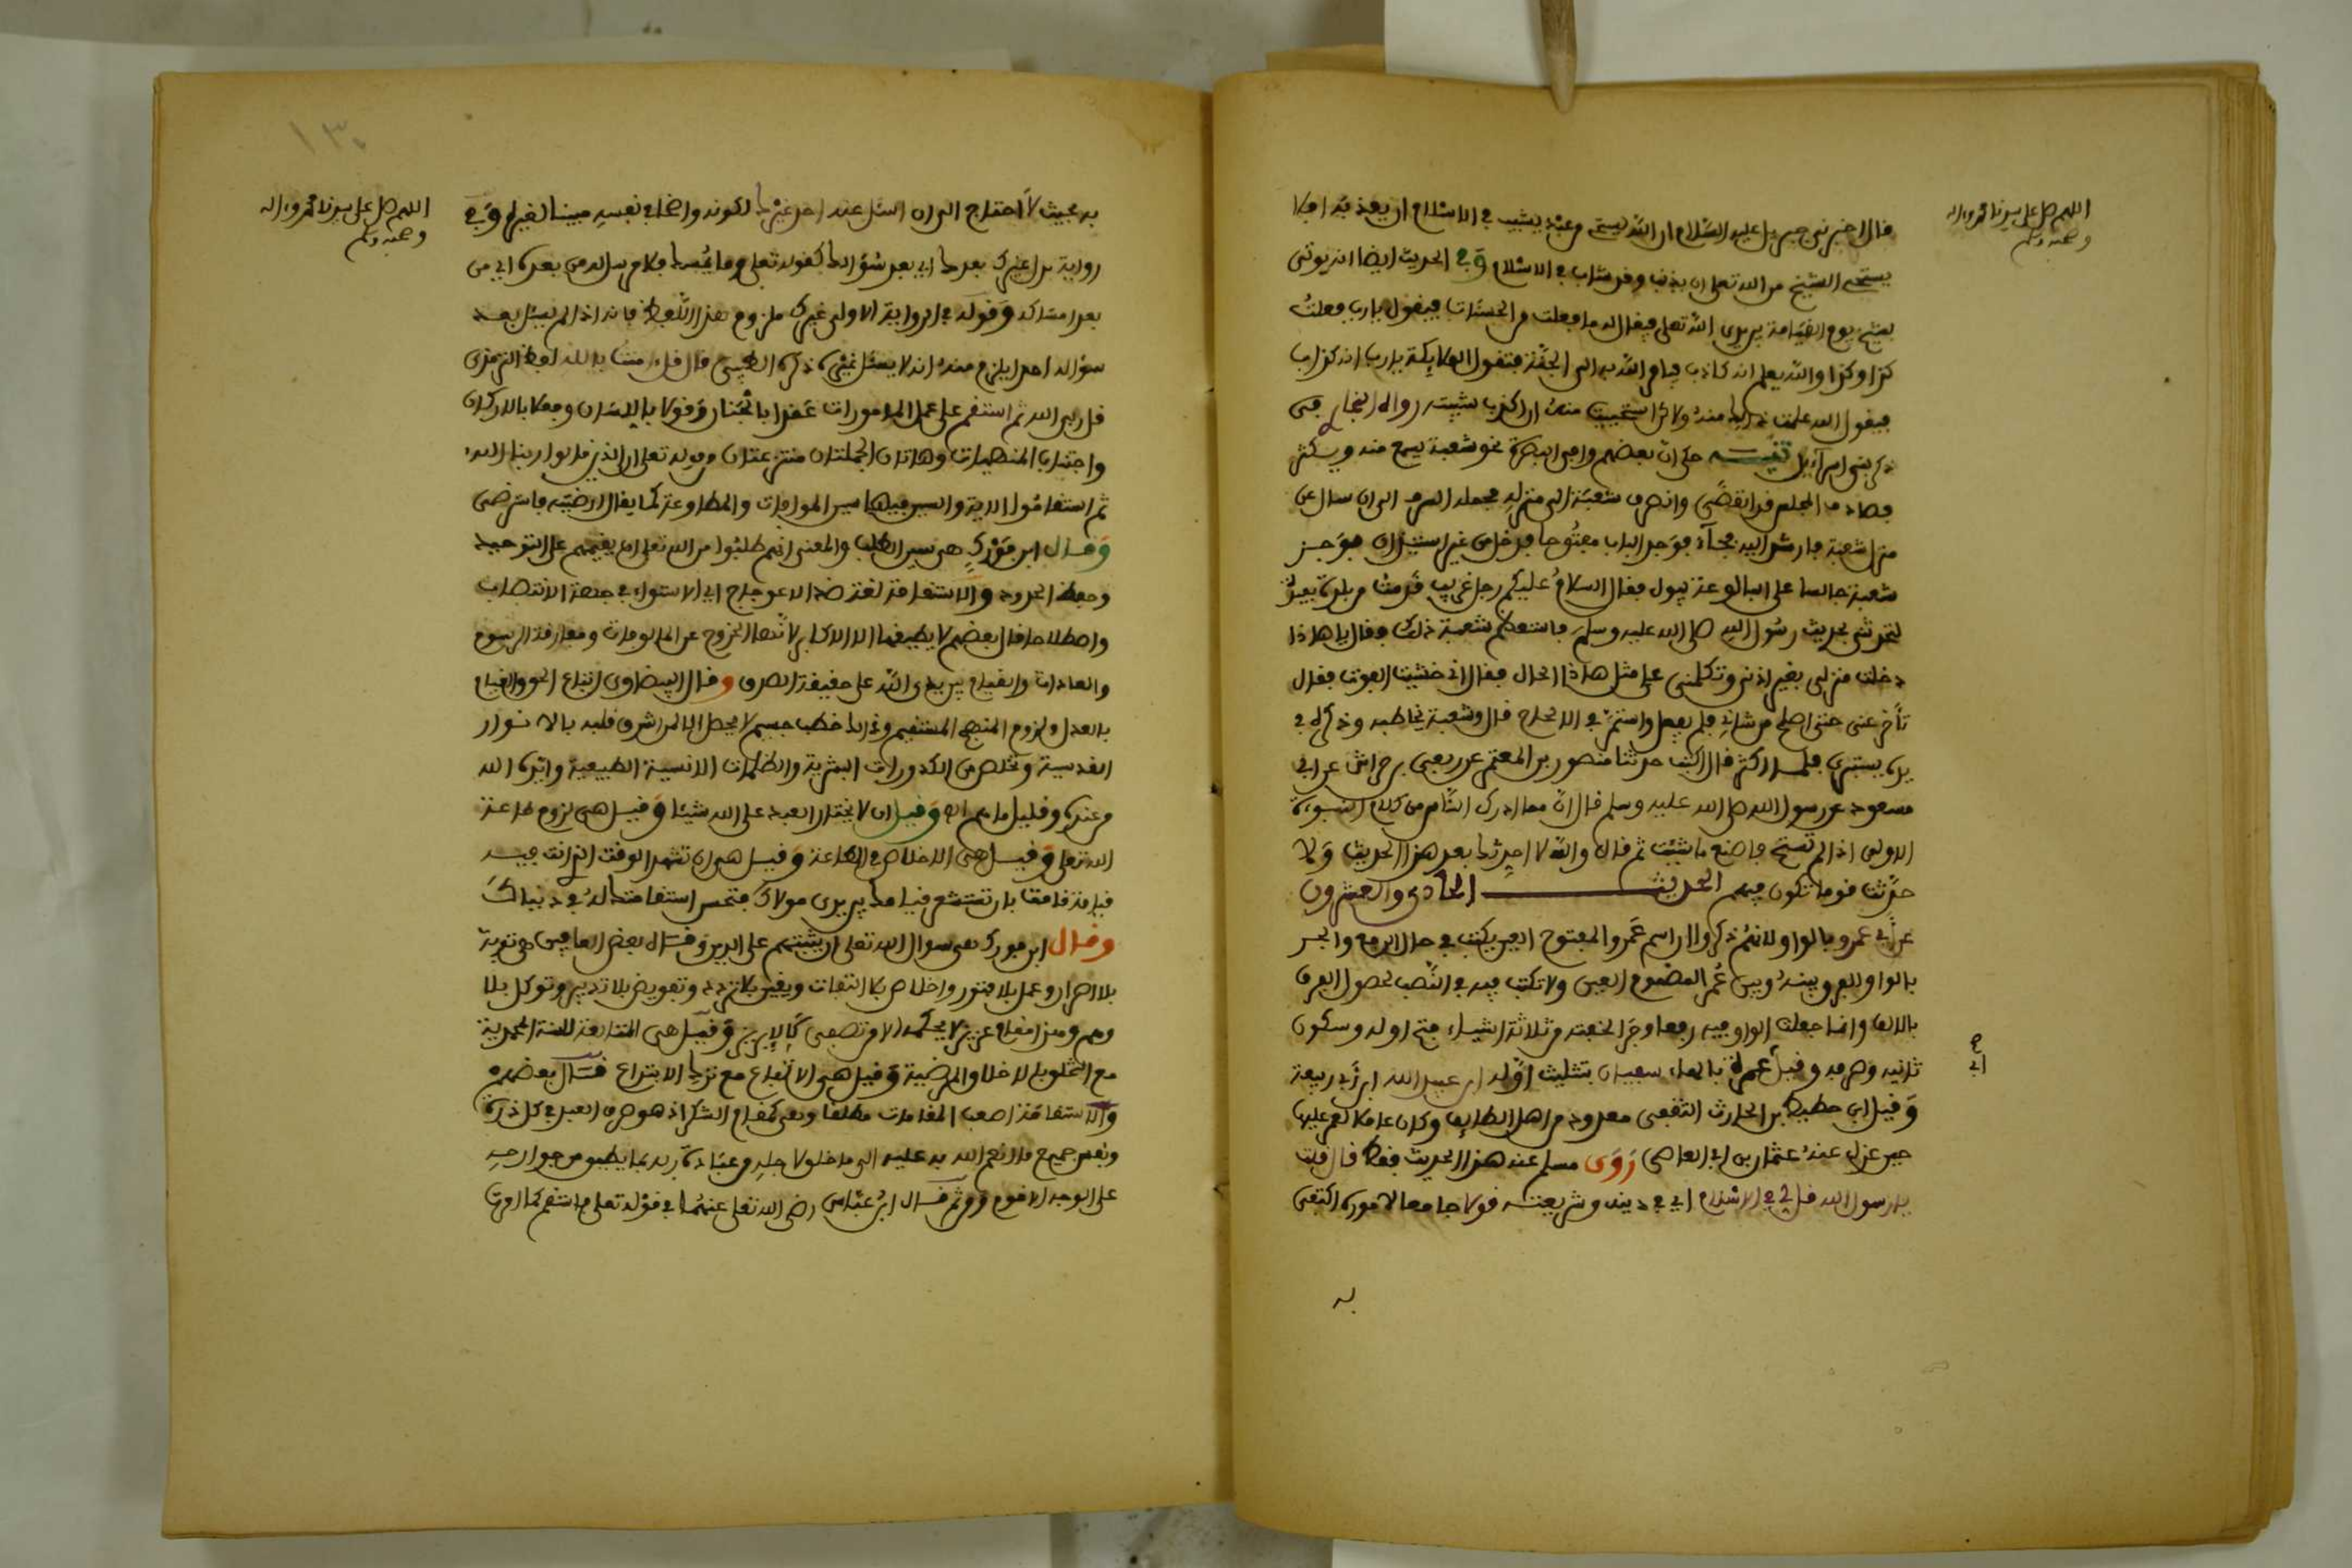 اللهم صل على سيدنا محمد واله
وصحبه وسلم
قال اخبرني جبريل عليه السلام ان الله يستحي من عبد يشيب في الاسلام ان يعذبه افلا
يستحي الشيخ من الله تعلى ان يذنب وقد شاب في الاسلام وفي الحديث ايضا انه يوتى
بشيخ يوم القيامة بين يدي الله تعلى فيقال له ما فعلت من الحسنات فيقول يا رب فعلت
كذا وكذا والله يعلم انه كاذب فيامر الله به الى الجنة فتقول الملائكة يا رب انه كذاب
فيقول الله علمت ذلك منه ولاكن استحييت منه ان اكذب شيبته رواه البخاري في
ذكر بني اسرآءيل تتمة حكي ان بعضهم وافى البصرة نحو شعبة يسمع منه ويكثر
فصادف المجلس قد انقضى وانصرف شعبة الى منزله فحمله السرف الى ان سال عن
منزل شعبة فارشد اليه فجآء فوجد الباب مفتوحا فدخل من غير استيذان فوجد
شعبة جالسا على البالوعة يبول فقال السلام عليكم رجل غريب قدمت من بلدة بعيدة
لتحدثني بحديث رسول الله صلى الله عليه وسلم فاستعظم شعبة ذلك وقال يا هاذا
دخلت منزلي بغير اذني وتكلمني على مثل هاذا الحال فقال اني خشيت الفوت فقال
تأخر عني حتى اصلح من شاني فلم يفعل واستمر في الالحاح قال وشعبة يخاطبه وذكره في
يده يستبري فلما اكثر قال اكتب حدثنا منصور بن المعتمر عن ربعي بن حراش عن ابي
مسعود عن رسول الله صلى الله عليه وسلم قال ان مما ادرك الناس من كلام النبوءة
الاولى اذا لم تستح فاصنع ما شئت ثم قال والله لا احدثك بعد هذا الحديث ولا
حدثت قوما تكون فيهم الحديث الحادي والعشرون
عن ابي عمرو بالواو لانهم ذكروا ان اسم عمرو المفتوح العين يكتب في حال الرفع والجر
بالواو للفرق بينه وبين عمر المضموم العين ولا تكتب فيه في النصب لحصول الفرق
بالالف وانما جعلت الواو فيه رفعا وجرا لخفته من ثلاثة اشياء فتح اوله وسكون
ثانيه وصرفه وقيل عمرة بالهاء سفيان بتثليث اوله ابن عبد الله ابن ابي ربيعة
وقيل ابي حطيط بن الحارث الثقفي معدود من اهل الطايف وكان عاملا لعمر عليها
حين عزل عنه عثمان بن ابي العاصي روى مسلم عنه هذا الحديث فقط قال قلت
يا رسول الله قل لي في الاسلام اي في دينه وشريعته قولا جامعا لاموره اكتفي
به
اللهم صل على سيدنا محمد واله
وصحبه وسلم
١٣٠
به بحيث لا احتاج الى ان اسئل عنه احدا غيرك لكونه واضحا في نفسه مبينا لغيره وفي
رواية بدل غيرك بعدك اي بعد سؤالك كقوله تعلى وما يمسك فلا مرسل له من بعده اي من
بعد امساكه وقوله في الرواية الاولى غيرك ملزوم هذا اللفظ فانه اذا لم يسئل بعد
سؤاله احدا يلزم منه انه لا يسئل غيره ذكره الطيبي قال قل ءامنت بالله لفظ الترمذي
قل ربي الله ثم استقم على عمل المامورات عقدا بالجنان وقولا باللسان وفعلا بالاركان
واجتناب المنهيات وهاتان الجملتان منتزعتان من قوله تعلى ان الذين قالوا ربنا الله
ثم استقاموا الاية والسين فيها سين الموافات والمطاوعة كما يقال ارضيته فاسترضى
وقال ابن فورك هي سين الطلب والمعنى انهم طلبوا من الله تعلى ان يقيمهم على التوحيد
وحفظ الحدود والاستقامة لغة ضد الاعوجاج اي الاستواء في جهة الانتصاب
واصطلاحا قال بعضهم لا يطيقها الا الاكابر لانها الخروج عن المالوفات ومفارقة الرسوم
والعادات والقيام بين يدي الله على حقيقة الصدق وقال البيضاوي اتباع الحق والقيام
بالعدل ولزوم المنهج المستقيم وذلك خطب جسيم لا يحصل الا لمن اشرق قلبه بالانوار
القدسية وتخلص من الكدورات البشرية والظلمات الانسية الطبيعية وايده الله
من عنده وقليل ما هم وقيل ان لا يختار العبد على الله شيئا وقيل هي لزوم طاعة
الله تعلى وقيل هي الاخلاص في الطاعة وقيل هي ان تشهد الوقت الذي انت فيه
قيامة قامت بان تستشعر قيامك بين يدي مولاك فتحسن استقامتك له في دنياك
وقال ابن فورك هي سوال الله تعلى ان يثبتهم على الدين وقال بعض العارفين هي توبة
بلا اصرار وعمل بلا فتور واخلاص بلا التفات ويقين بلا تردد وتفويض بلا تدبير وتوكل بلا
وهم وهذا مقام عزيز لا يحكمه الا من تصفى كالابريز وقيل هي المتابعة للسنة المحمدية
مع التخلق بالاخلاق المرضية وقيل هي الاتباع مع ترك الابتداع قال بعضهم
والاستقامة اصعب المقامات مطلقا وهي كمقام الشكر اذ هو صرف العبد في كل ذرة
ونفس جميع ما انعم الله به عليه الى ما خلق لاجله من عبادة ربه بما يطيق من جوارحه
على الوجه الاقوم ومن ثم قال ابن عباس رضي الله تعلى عنهما في قوله تعلى فاستقم كما امرت